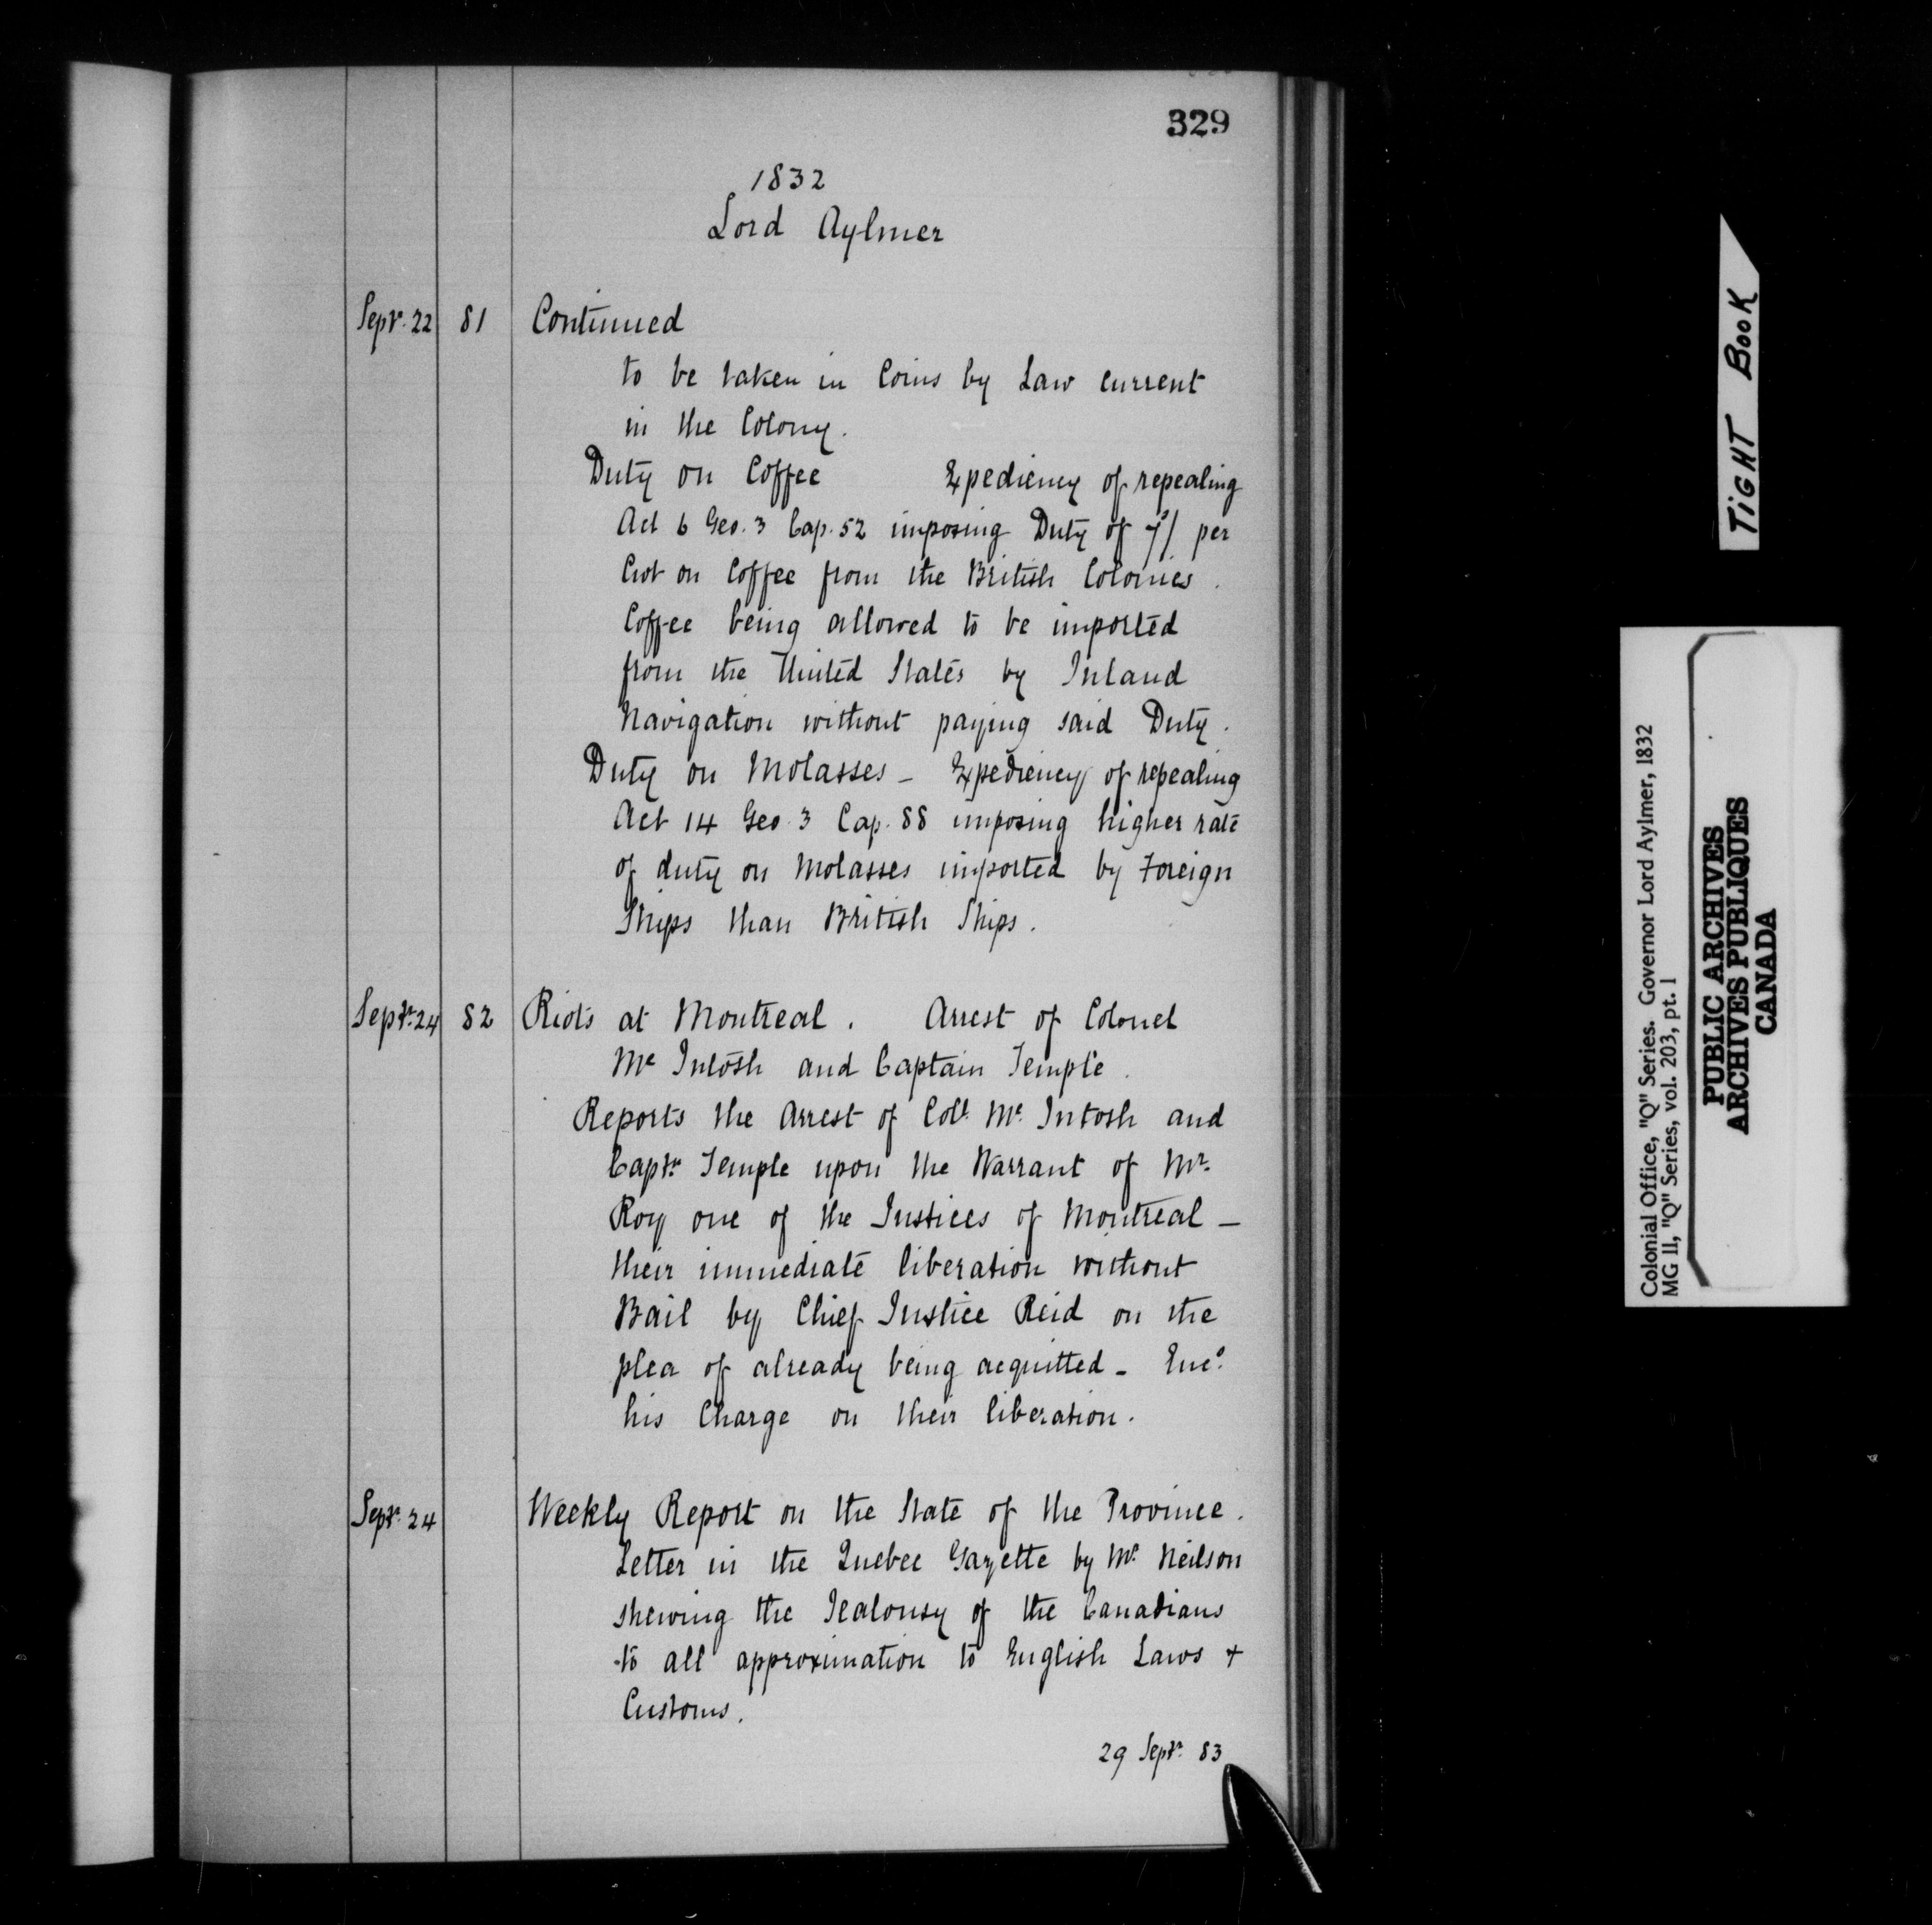 329
1832
Lord Aylmer
Septr. 22 81 Continued
to be taken in Coins by Law current
in the Colony.
Duty on Coffee Expediency of repealing
Act 6 Geo. 3 Cap. 52 imposing Duty of 7/ per
Cwt on Coffee from the British Colonies.
Coffee being allowed to be imported
from the United States by Inland
Navigation without paying said Duty.
Duty on Molasses - Expediency of repealing
Act 14 Geo. 3 Cap. 88 imposing higher rate
of duty on Molasses imported by Foreign
Ships than British Ships.
Septr. 24 82 Riots at Montreal. Arrest of Colonel
Mc Intosh and Captain Temple.
Reports the Arrest of Coll. Mc. Intosh and
Captn. Temple upon the Warrant of Mr.
Roy one of the Justices of Montreal -
their immediate liberation without
Bail by Chief Justice Reid on the
plea of already being acquitted - Enco.
his Charge on their liberation.
Septr. 24 Weekly Report on the State of the Province.
Letter in the Quebec Gazette by Mr. Neilson
shewing the Jealousy of the Canadians
to all approximation to English Laws +
Customs.
29 Septr. 83
TIGHT BOOK
Colonial Office, "Q" Series. Governor Lord Aylmer, 1832
MG 11, "Q" Series, vol. 203, pt. 1
PUBLIC ARCHIVES
ARCHIVES PUBLIQUES
CANADA